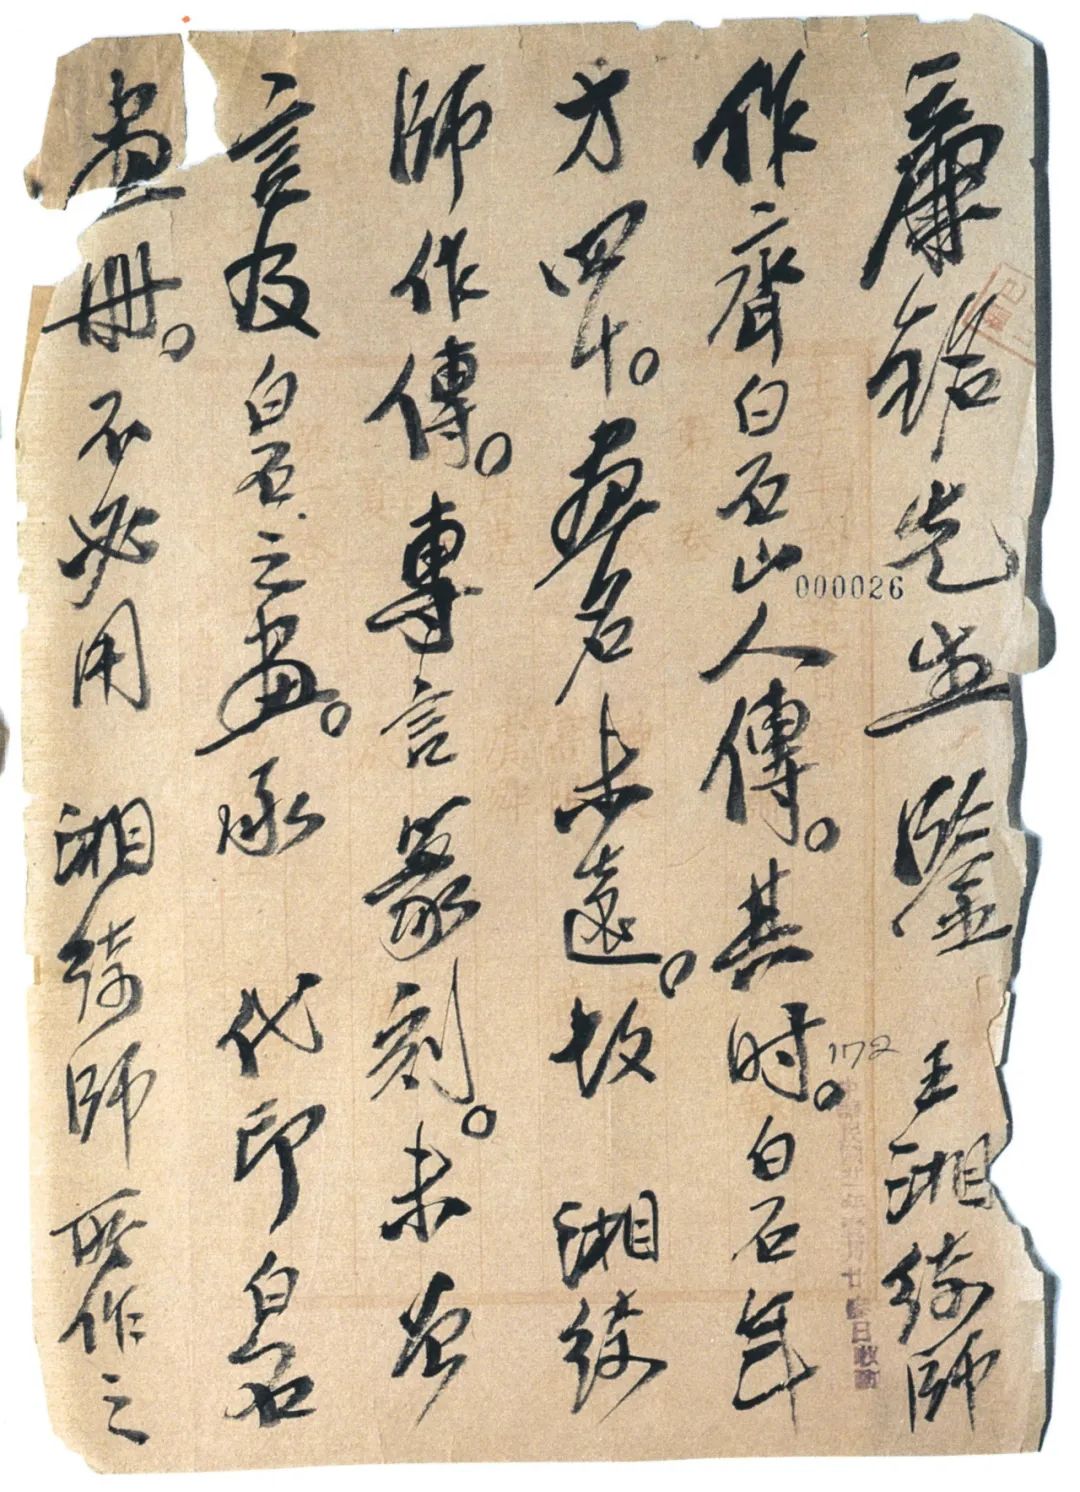 廉銘先生鑒 王湘綺師
作齊白石山人傳。其时。白石年
方四十。画名未遠。故 湘綺
師作傳。專言篆刻。未曾
言及白石之畫。承 代印白石
畫册。不必用 湘綺師所作之
000026
1172